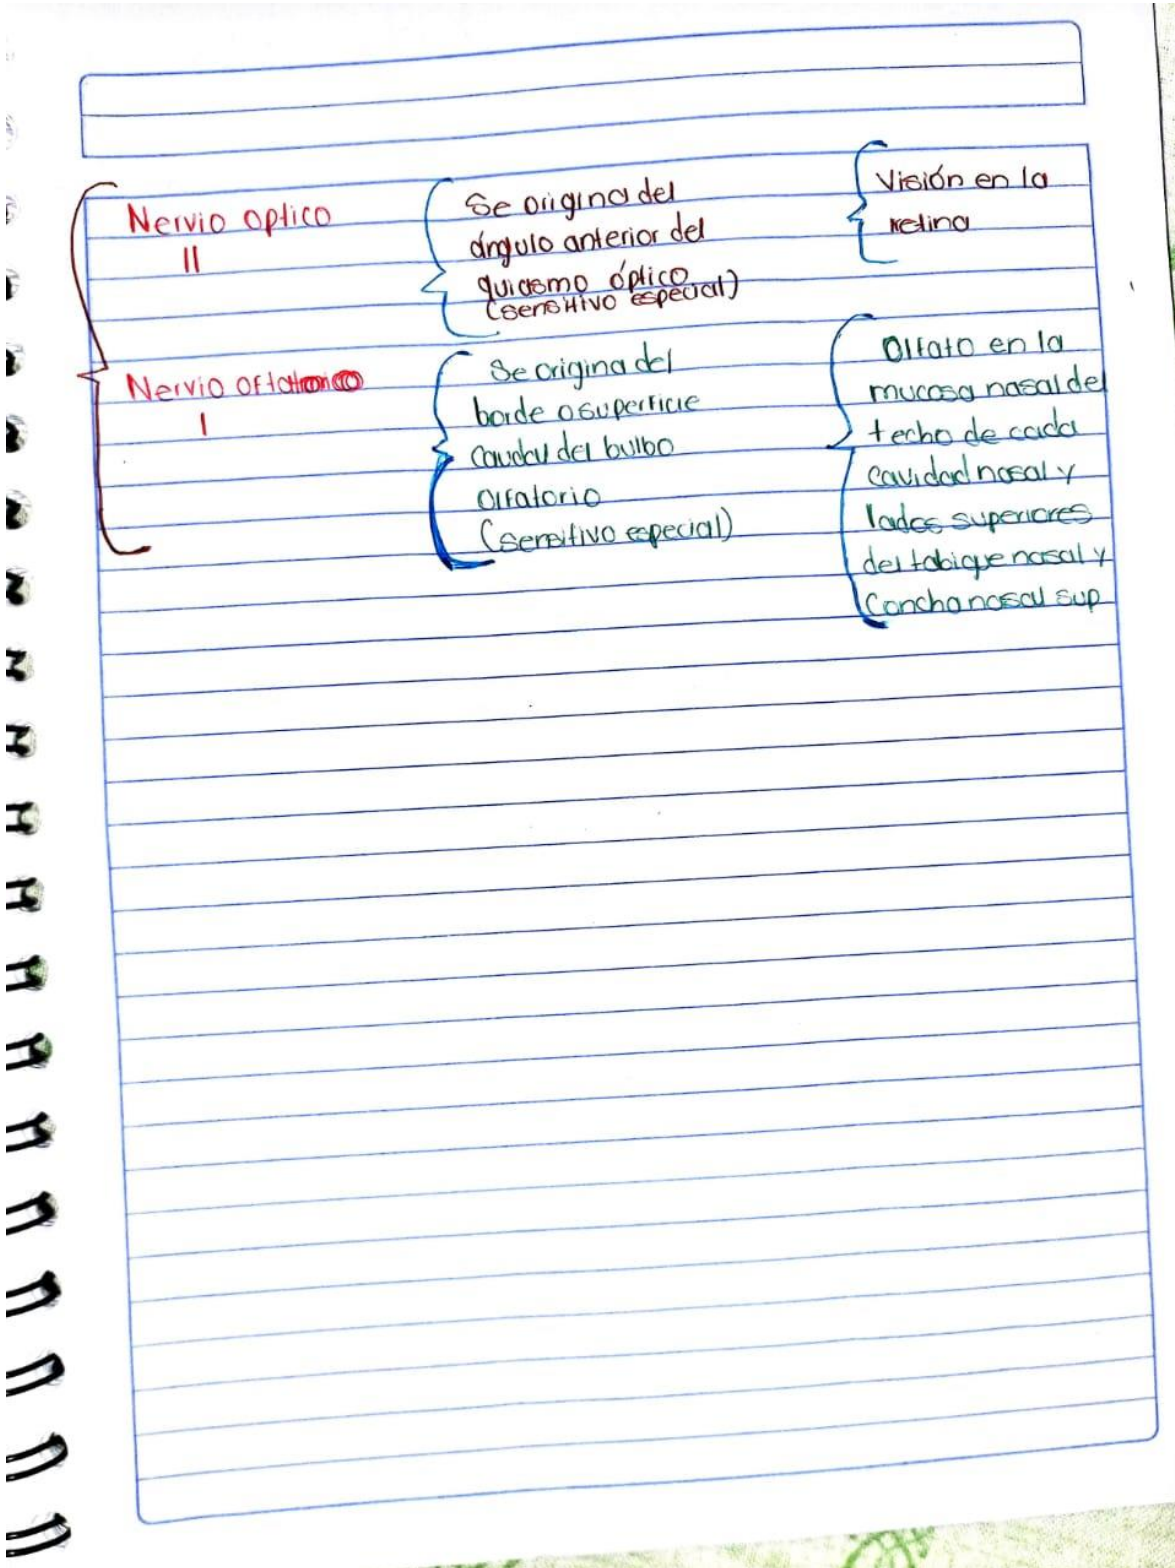 Nervio optico
II
Se origina del
ángulo anterior del
quiasmo óptico
(sensitivo especial)
Visión en la
retina
Nervio
I
Se origina del
borde o superficie
caudal del bulbo
olfatorio
(sensitivo especial)
Olfato en la
mucosa nasal del
techo de cada
cavidad nasal y
lados superiores
del tabique nasal y
Concha nasal sup